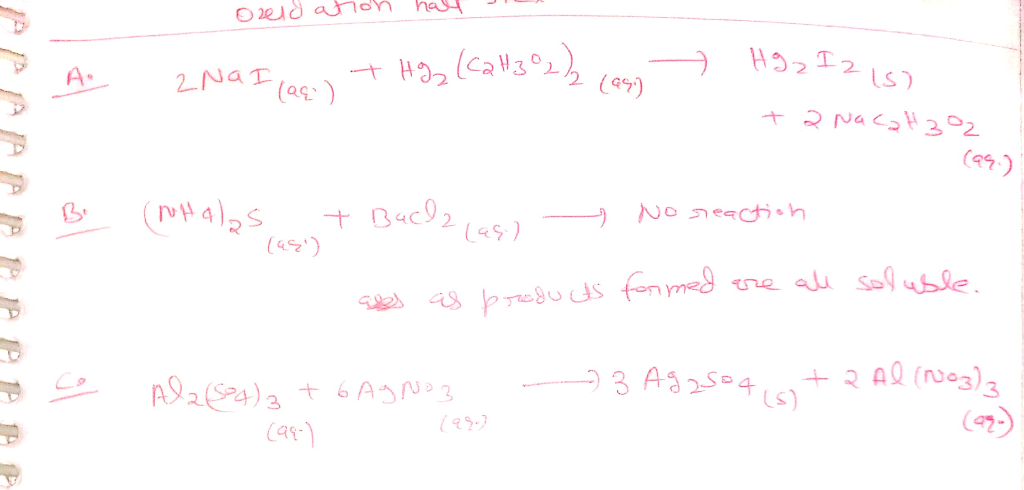 Oxidation half
A. 2NaI (aq.) + Hg2(C2H3O2)2 (aq.) → Hg2I2 (s)
+ 2NaC2H3O2 (aq.)
B. (NH4)2S (aq.) + BaCl2 (aq.) → No reaction
as products formed are all soluble.
C. Al2(SO4)3 (aq.) + 6AgNO3 (aq.) → 3Ag2SO4 (s) + 2Al(NO3)3 (aq.)